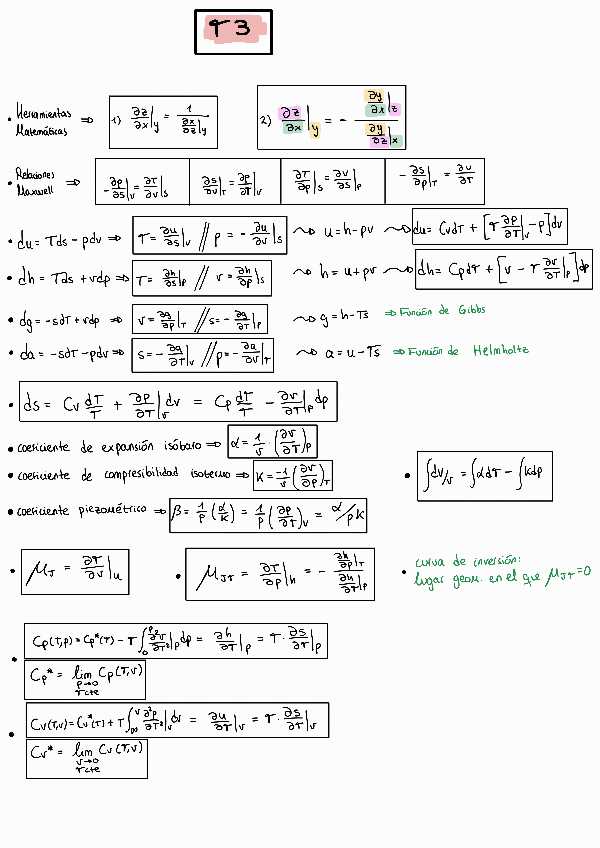 T3
• Herramientas Matemáticas ⇒ 1) ∂z/∂x|y = 1 / (∂x/∂z|y)   2) ∂z/∂x|y = - (∂y/∂x|z) / (∂y/∂z|x)
• Relaciones Maxwell ⇒ -∂p/∂s|v = ∂T/∂v|s   ∂s/∂v|T = ∂p/∂T|v   ∂T/∂p|s = ∂v/∂s|p   -∂s/∂p|T = ∂v/∂T
• du = Tds - pdv ⇒ T = ∂u/∂s|v // p = -∂u/∂v|s ⇝ u = h - pv ⇝ du = CvdT + [T ∂p/∂T|v - p]dv
• dh = Tds + vdp ⇒ T = ∂h/∂s|p // v = ∂h/∂p|s ⇝ h = u + pv ⇝ dh = CpdT + [v - T ∂v/∂T|p]dp
• dg = -sdT + vdp ⇒ v = ∂g/∂p|T // s = -∂g/∂T|p ⇝ g = h - Ts ⇒ Función de Gibbs
• da = -sdT - pdv ⇒ s = -∂a/∂T|v // p = -∂a/∂v|T ⇝ a = u - Ts ⇒ Función de Helmholtz
• ds = Cv dT/T + ∂p/∂T|v dv = Cp dT/T - ∂v/∂T|p dp
• coeficiente de expansión isóbaro ⇒ α = 1/v · (∂v/∂T)p
• coeficiente de compresibilidad isotermo ⇒ K = -1/v (∂v/∂p)T
• ∫dv/v = ∫αdT - ∫kdp
• coeficiente piezométrico ⇒ β = 1/p (α/K) = 1/p (∂p/∂T)v = α/pK
• μJ = ∂T/∂v|u
• μJT = ∂T/∂p|h = - (∂h/∂p|T) / (∂h/∂T|p)
• curva de inversión:
lugar geom. en el que μJT = 0
• Cp(T,p) = Cp*(T) - T ∫₀ᵖ ∂²v/∂T²|p dp = ∂h/∂T|p = T · ∂s/∂T|p
Cp* = lim Cp(T,v)
p→0
T cte
• Cv(T,v) = Cv*(T) + T ∫∞ᵛ ∂²p/∂T²|v dv = ∂u/∂T|v = T · ∂s/∂T|v
Cv* = lim Cv(T,v)
v→0
T cte